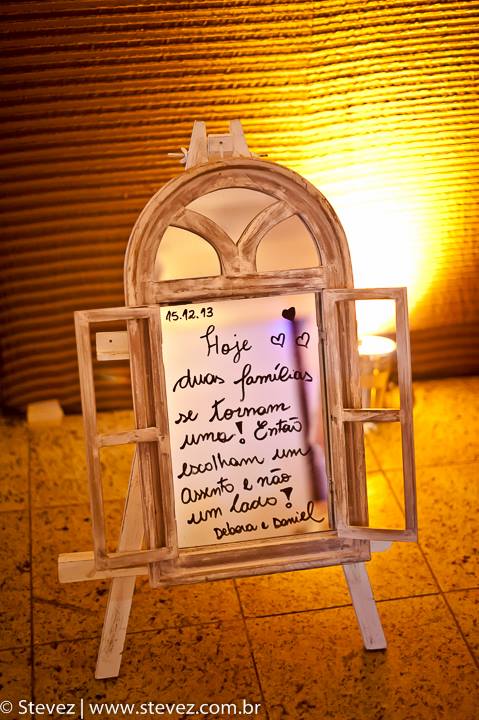 15.12.13
Hoje
duas famílias
se tornam
uma! Então
escolham um
assento e não
um lado!
Debora e Daniel
© Stevez | www.stevez.com.br